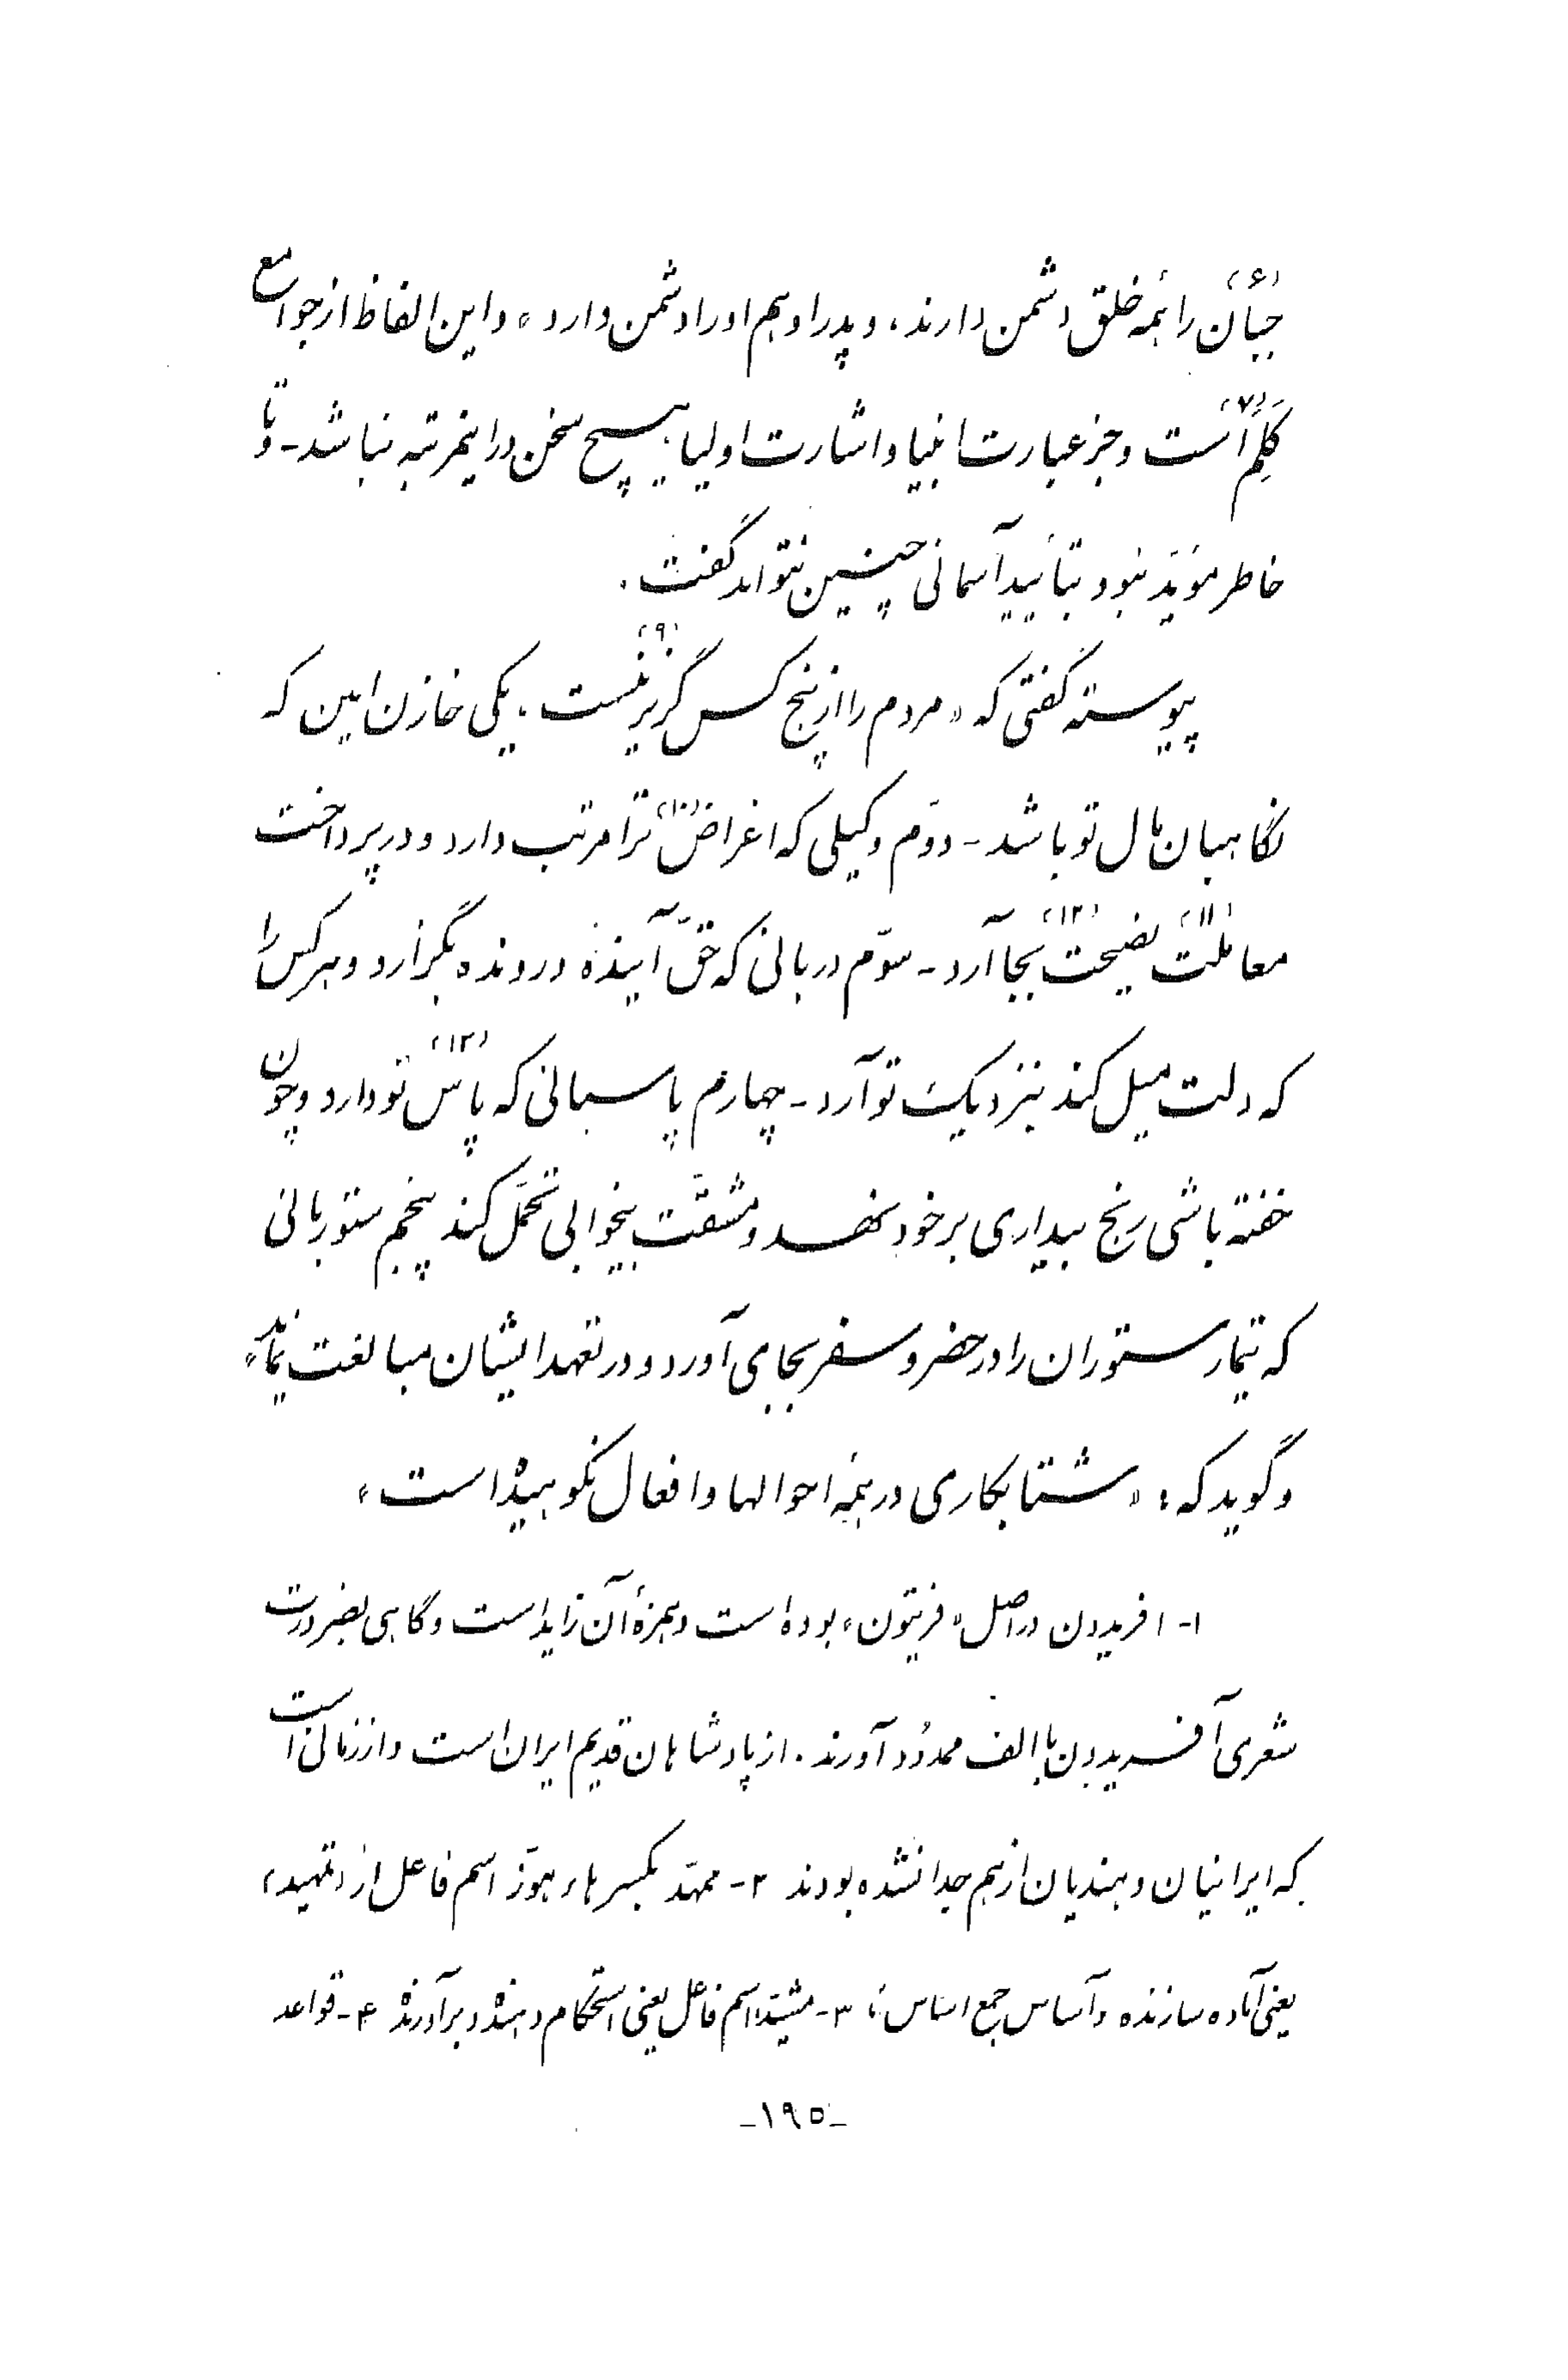 جَبان(۶) را همه خلق دشمن دارند، و پدر او هم او را دشمن دارد» و این الفاظ از جوامع
کَلِم(۷) است و جز عبارت انبیا و اشارت اولیا، هیچ سخن در اینمرتبه نباشد - و تا
خاطر مؤیّد نبود بتأیید آسمانی چنین نتواند گفت.
پیوسته گفتی که «مردم را از پنج کس گزیر(۹) نیست، یکی خازن امین که
نگاهبان مال تو باشد - دوّم وکیلی که اغراض(۱۰) ترا مرتب دارد و در پرداخت
معاملت(۱۱) نصیحت(۱۲) بجا آرد - سوّم دربانی که حقّ آینده و رونده بگزارد و هر کس را
که دلت میل کند بنزدیک تو آرد - چهارم پاسبانی که پاس(۱۳) تو دارد و چون
خفته باشی رنج بیداری بر خود نهد و مشقّت بیخوابی تحمّل کند پنجم ستوربانی
که تیمار ستوران را در حضر و سفر بجای آورد و در تعهد ایشان مبالغت نماید»
و گوید که: «شتابکاری در همه احوالها و افعال نکوهیده است»
۱- افریدون در اصل «فریتون» بوده است و همزهٔ آن زاید است و گاهی بضرورت
شعری آفریدون با الف ممدود آورند. از پادشاهان قدیم ایران است و از زمانی است
که ایرانیان و هندیان از هم جدا نشده بودند ۲- ممهّد بکسر هاء هوّز اسم فاعل از (تمهید)
یعنی آماده سازنده و آساس جمع اساس، ۳- مشیّد اسم فاعل یعنی استحکام دهنده و برآورنده ۴- قواعد
-۱۹۵-